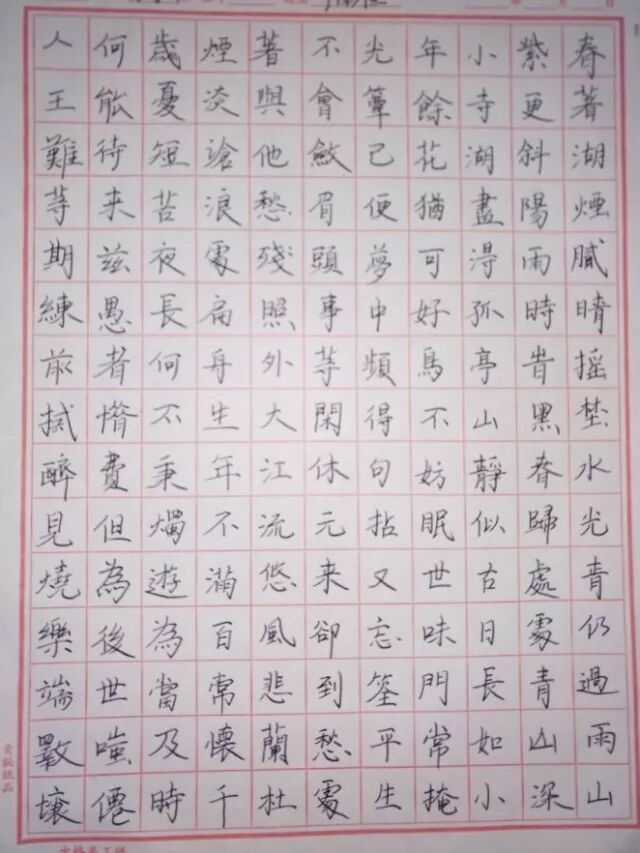 春著湖煙膩晴搖埜水光青仍過雨山
紫更斜陽雨時昔黑春歸處處青山深
小寺湖盡得孤亭山靜似古日長如小
年餘花猶可好鳥不妨眠世味門常掩
光簟已便夢中頻得句拈又忘筌平生
不會斂眉頭事等閑休元来卻到愁處
著與他愁殘照外大江流悠風悲蘭杜
煙淡滄浪處扁舟生年不滿百常懷千
歲憂短苦夜長何不秉燭遊為當及時
何能待来茲愚者惜費但為後世嗤僊
人王難等期練前拭醉見燒樂端斁壞